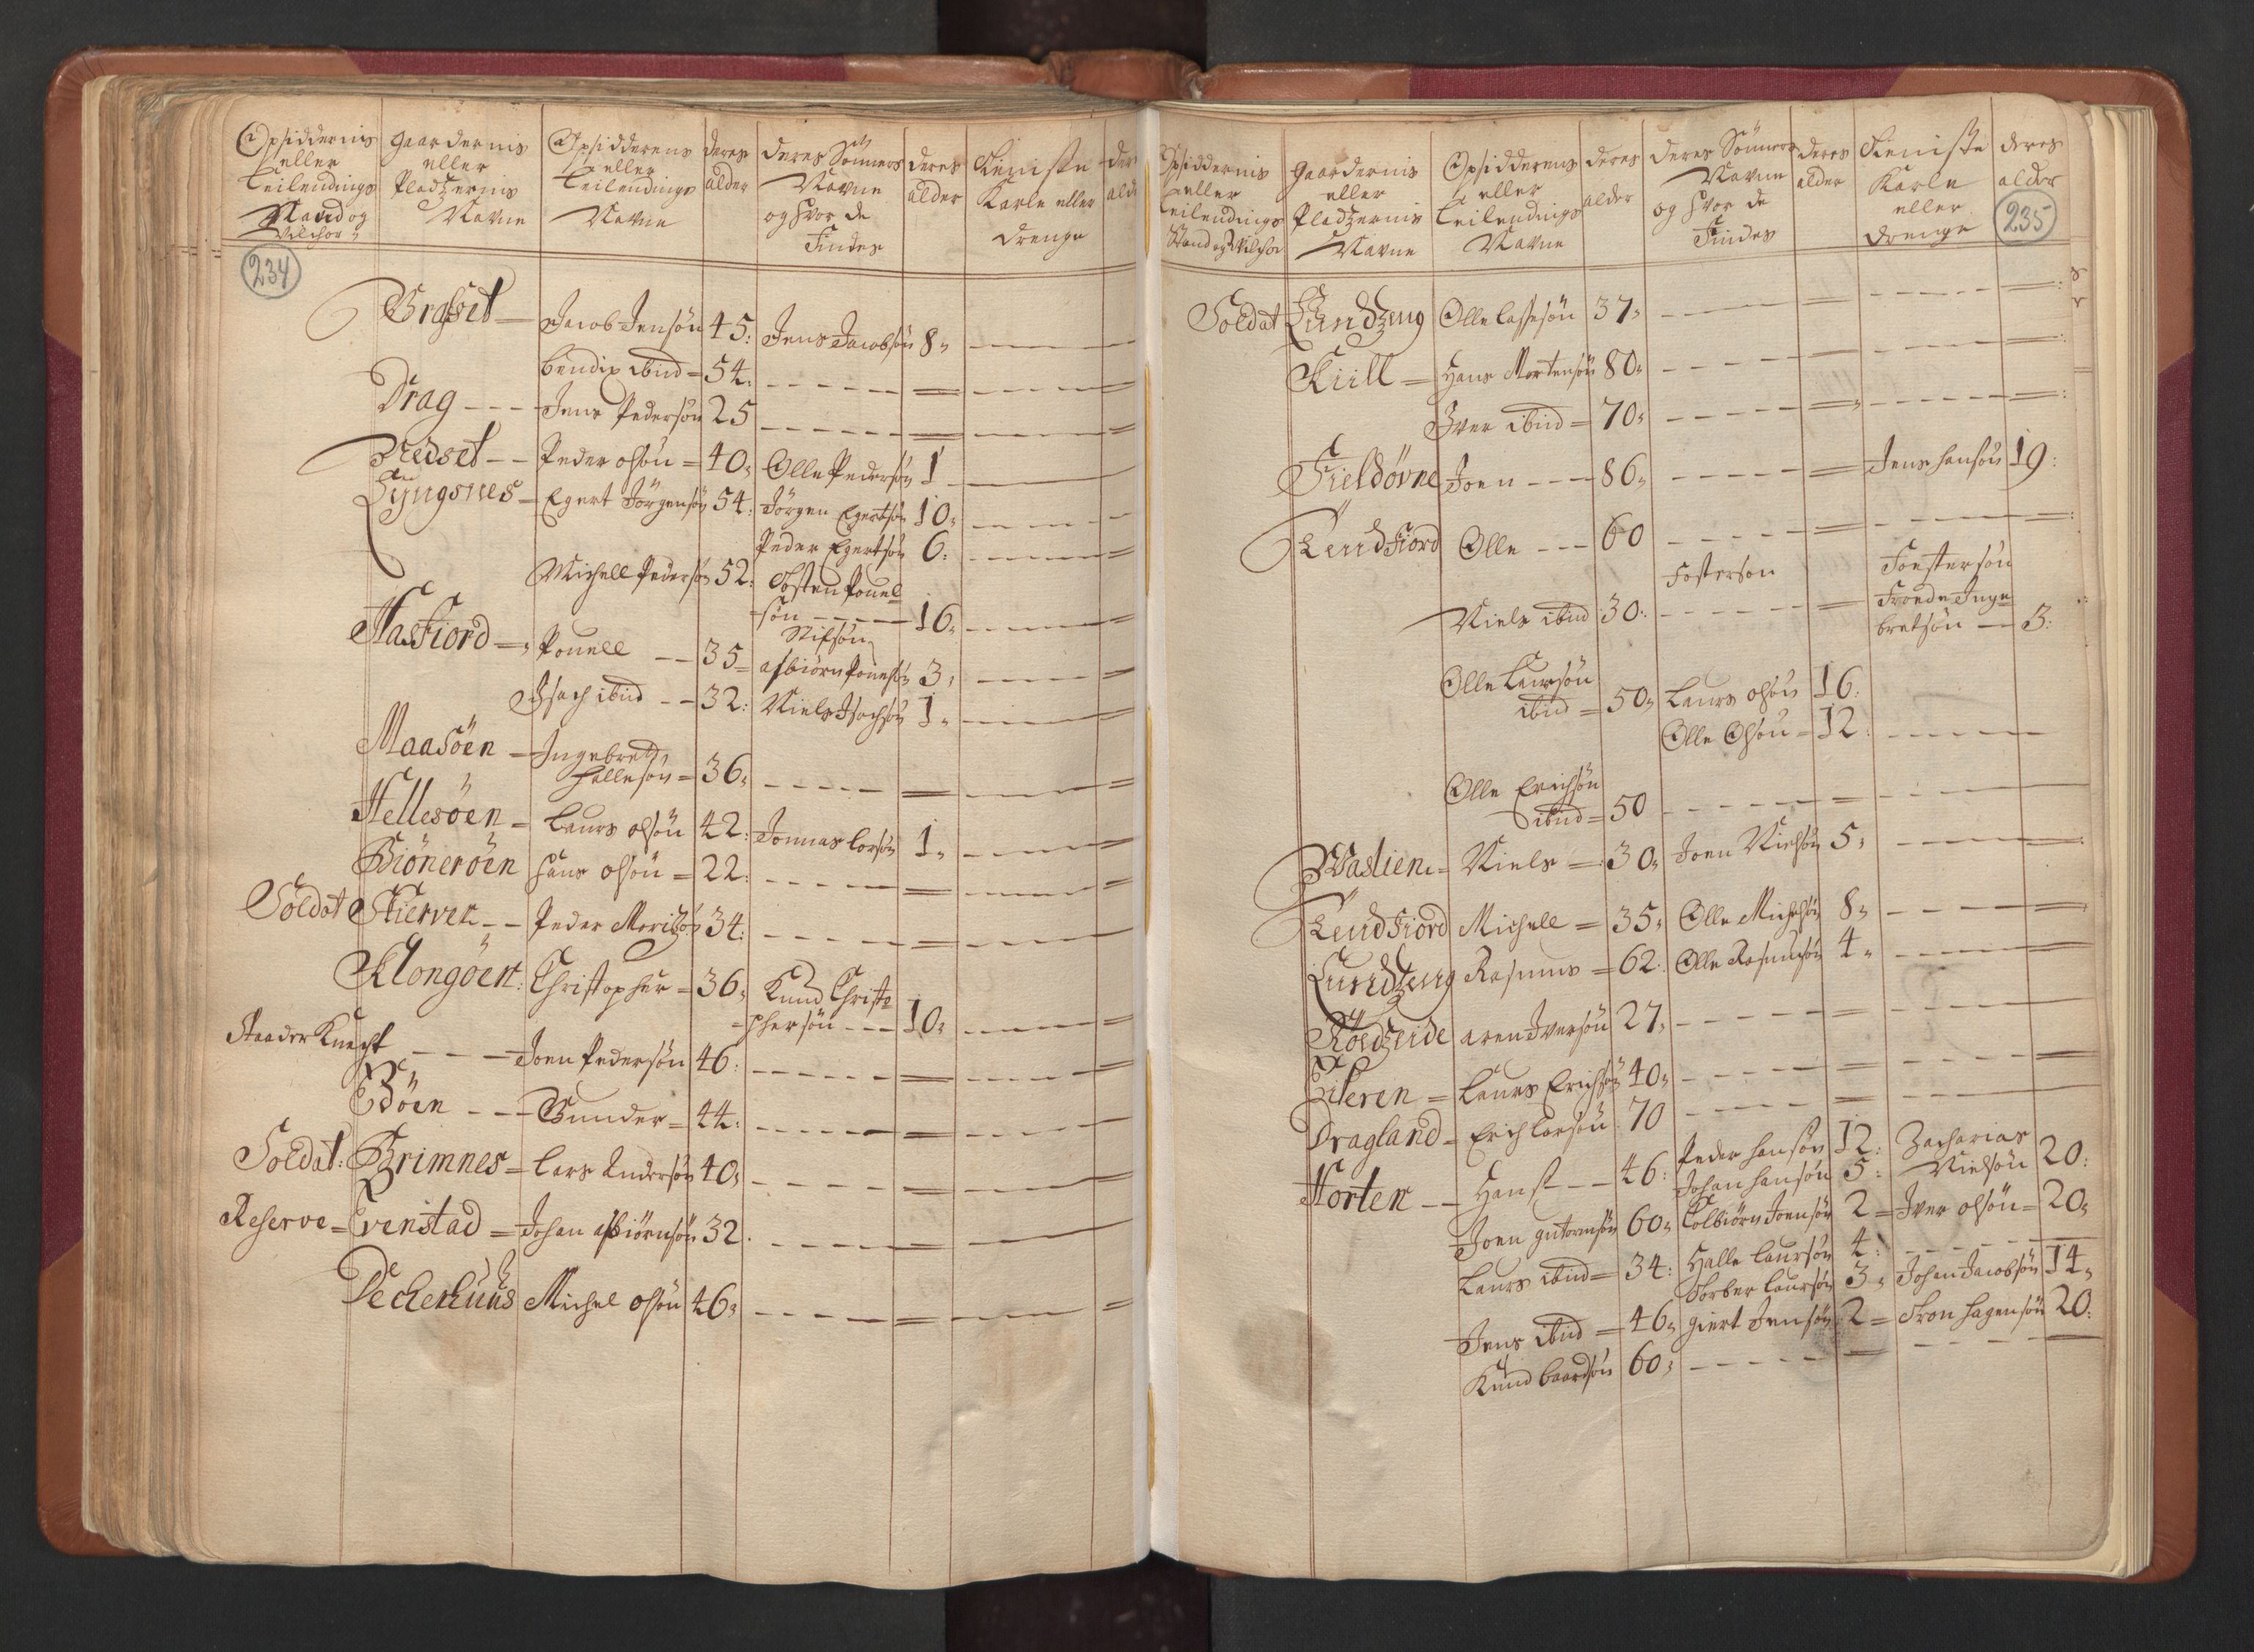 Opsiddernis eller Leilendings Stand og Vilchor
Gaardernis eller Pladzernis Navne
Opsidderens eller Leilendings Navne
deres alder
deres Sønners Navne og hvor de Findes
deres alder
Tieniste Karle eller drenge
234
Grøset — Jacob Jensøn 45: Jens Jacobsøn 8
bendix ibid = 54:
Drag - - - Jens Pedersøn 25
Peder olsøn = 40, Olle Pedersøn 1
Lyngsnes — Egert Jørgensøn 54: Jörgen Egertsøn 10,
Peder Egertsøn 6:
Michell Pedersøn 52: Tosten Pouel
-søn - - - - 16,
Stifsøn
Hasfiord — Pouell - - 35 = asbiørn Pouelsøn 3,
Isach ibid - - 32: Niels Isachsøn 1,
Maasöen — Ingebret
Hallesøn = 36,
Hellesöen — Laurs olsøn 42: Jonnas larsøn 1,
Biöneröen hans olsøn = 22:
Soldat Skierven - - Peder Moritzøn 34:
Klongöen: Christopher = 36, Knud Christo
=phersøn - - - 10,
- - - Joen Pedersøn 46:
Edöen - - - Gunder = 44:
Soldat: Brimnes = lars Andersøn 40,
Reserve = Evenstad = Johan asbiörnsøn 32
Dechenhuus Michel olsøn 46,
Opsiddernis eller Leilendings Stand og Vilchor
Gaardernis eller Pladzernis Navne
Opsidderens eller Leilendings Navne
deres alder
deres Sönners Navne og hvor de Findes
deres alder
Tieniste Karle eller drenge
deres alder
235
Soldat Lundzeng Olle lassesøn 37,
Kiill = Hans Mortensøn 80,
Iver ibid = 70,
Fieldövne Joen - - - 86, Jens hansøn 19:
Lendfiord Olle - - - 60
Fosterson Foestersøn
Niels ibid 30: Froede Inge
bretsøn — 3:
Olle Laursøn
ibid = 50, Laurs olsøn 16:
Olle Olsøn = 12:
Olle Erichsøn
ibid = 50
Wastien = Niels = 30, Joen Nielsøn 5,
Lendfiord Michell = 35, Olle Michelsøn 8,
Lundzeng Rasmus = 62: Olle Rasmusøn 4,
Röedzeide aren Iversøn 27,
Laurs Erichsøn 40,
Dragland = Erich larsøn 70
Horten - - Hans - - 46: Peder hansøn 12: Zacharias
Johan hansøn 5: Nielsøn 20:
Joen gutormsøn 60, Tolbiörn Joensøn 2 = Iver olsøn = 20,
Laurs ibid = 34: Halle laursøn 4:
Torber laursøn 3, Johan Jacobsøn 14,
Jens ibid = 46, giert Jensøn 2 = Tron hagensøn 20:
Knud baardsøn 60,